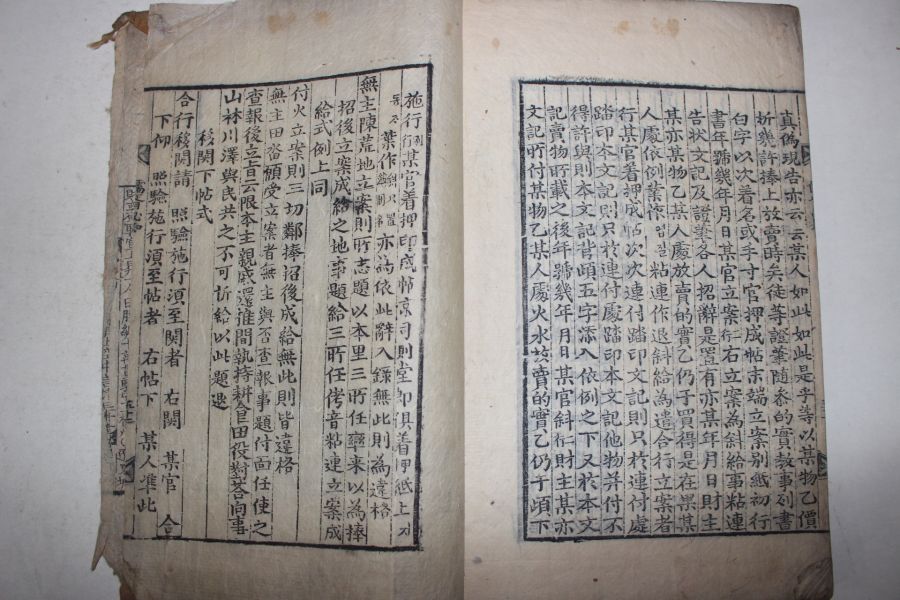 真偽現告亦云云某人如此如此是乎等以某物乙價
折幾許捧上放賣時矣徒等證筆隨參的實敎事列書
白字以次着名或手寸官押成帖末端立案別紙初行
書年號幾年月日某官立案行右立案爲斜給事粘連
告狀文記及證筆各人招辭是置有亦某年月日財主
某亦某物乙某人處放賣的實乙仍于買得是在果某
人處依例
粘連作退斜給爲遣合行立案者
行某官着押成帖次次連付踏印文記則只於連付處
踏印本文記則只於連付處踏印本文記他物幷付不
得許與則本文記背頉五字添入依例之下又於本文
記賣物所載之後年號幾年月日某官斜行財主某亦
文記所付某物乙某人處
放賣的實乙仍于頉下
施行行某官着押印成帖京司則堂郞俱着押紙上
亦爲依此辭入錄無此則爲違格
無主陳荒地立案則所志題以本里三所任率來以爲捧
招後立案成給之地事題給三所任侤音粘連立案成
給式例上同
付火立案則三切鄰捧招後成給無此則皆違格
無主田畓願受立案者無主與否査報事題付面任使之
査報後立旨云限本主親戚還推間執持耕食田役對答向事
山林川澤與民共之不可折給以此題退
移關下帖式
合行移關請 照驗施行須至關者 右關 某官 合
下仰 照驗施行須至帖者 右帖下 某人準此